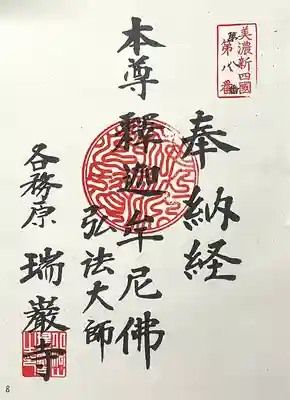 美濃新四國
第八番
奉納経
本尊釋迦牟尼佛
弘法大師
各務原瑞巖寺
8